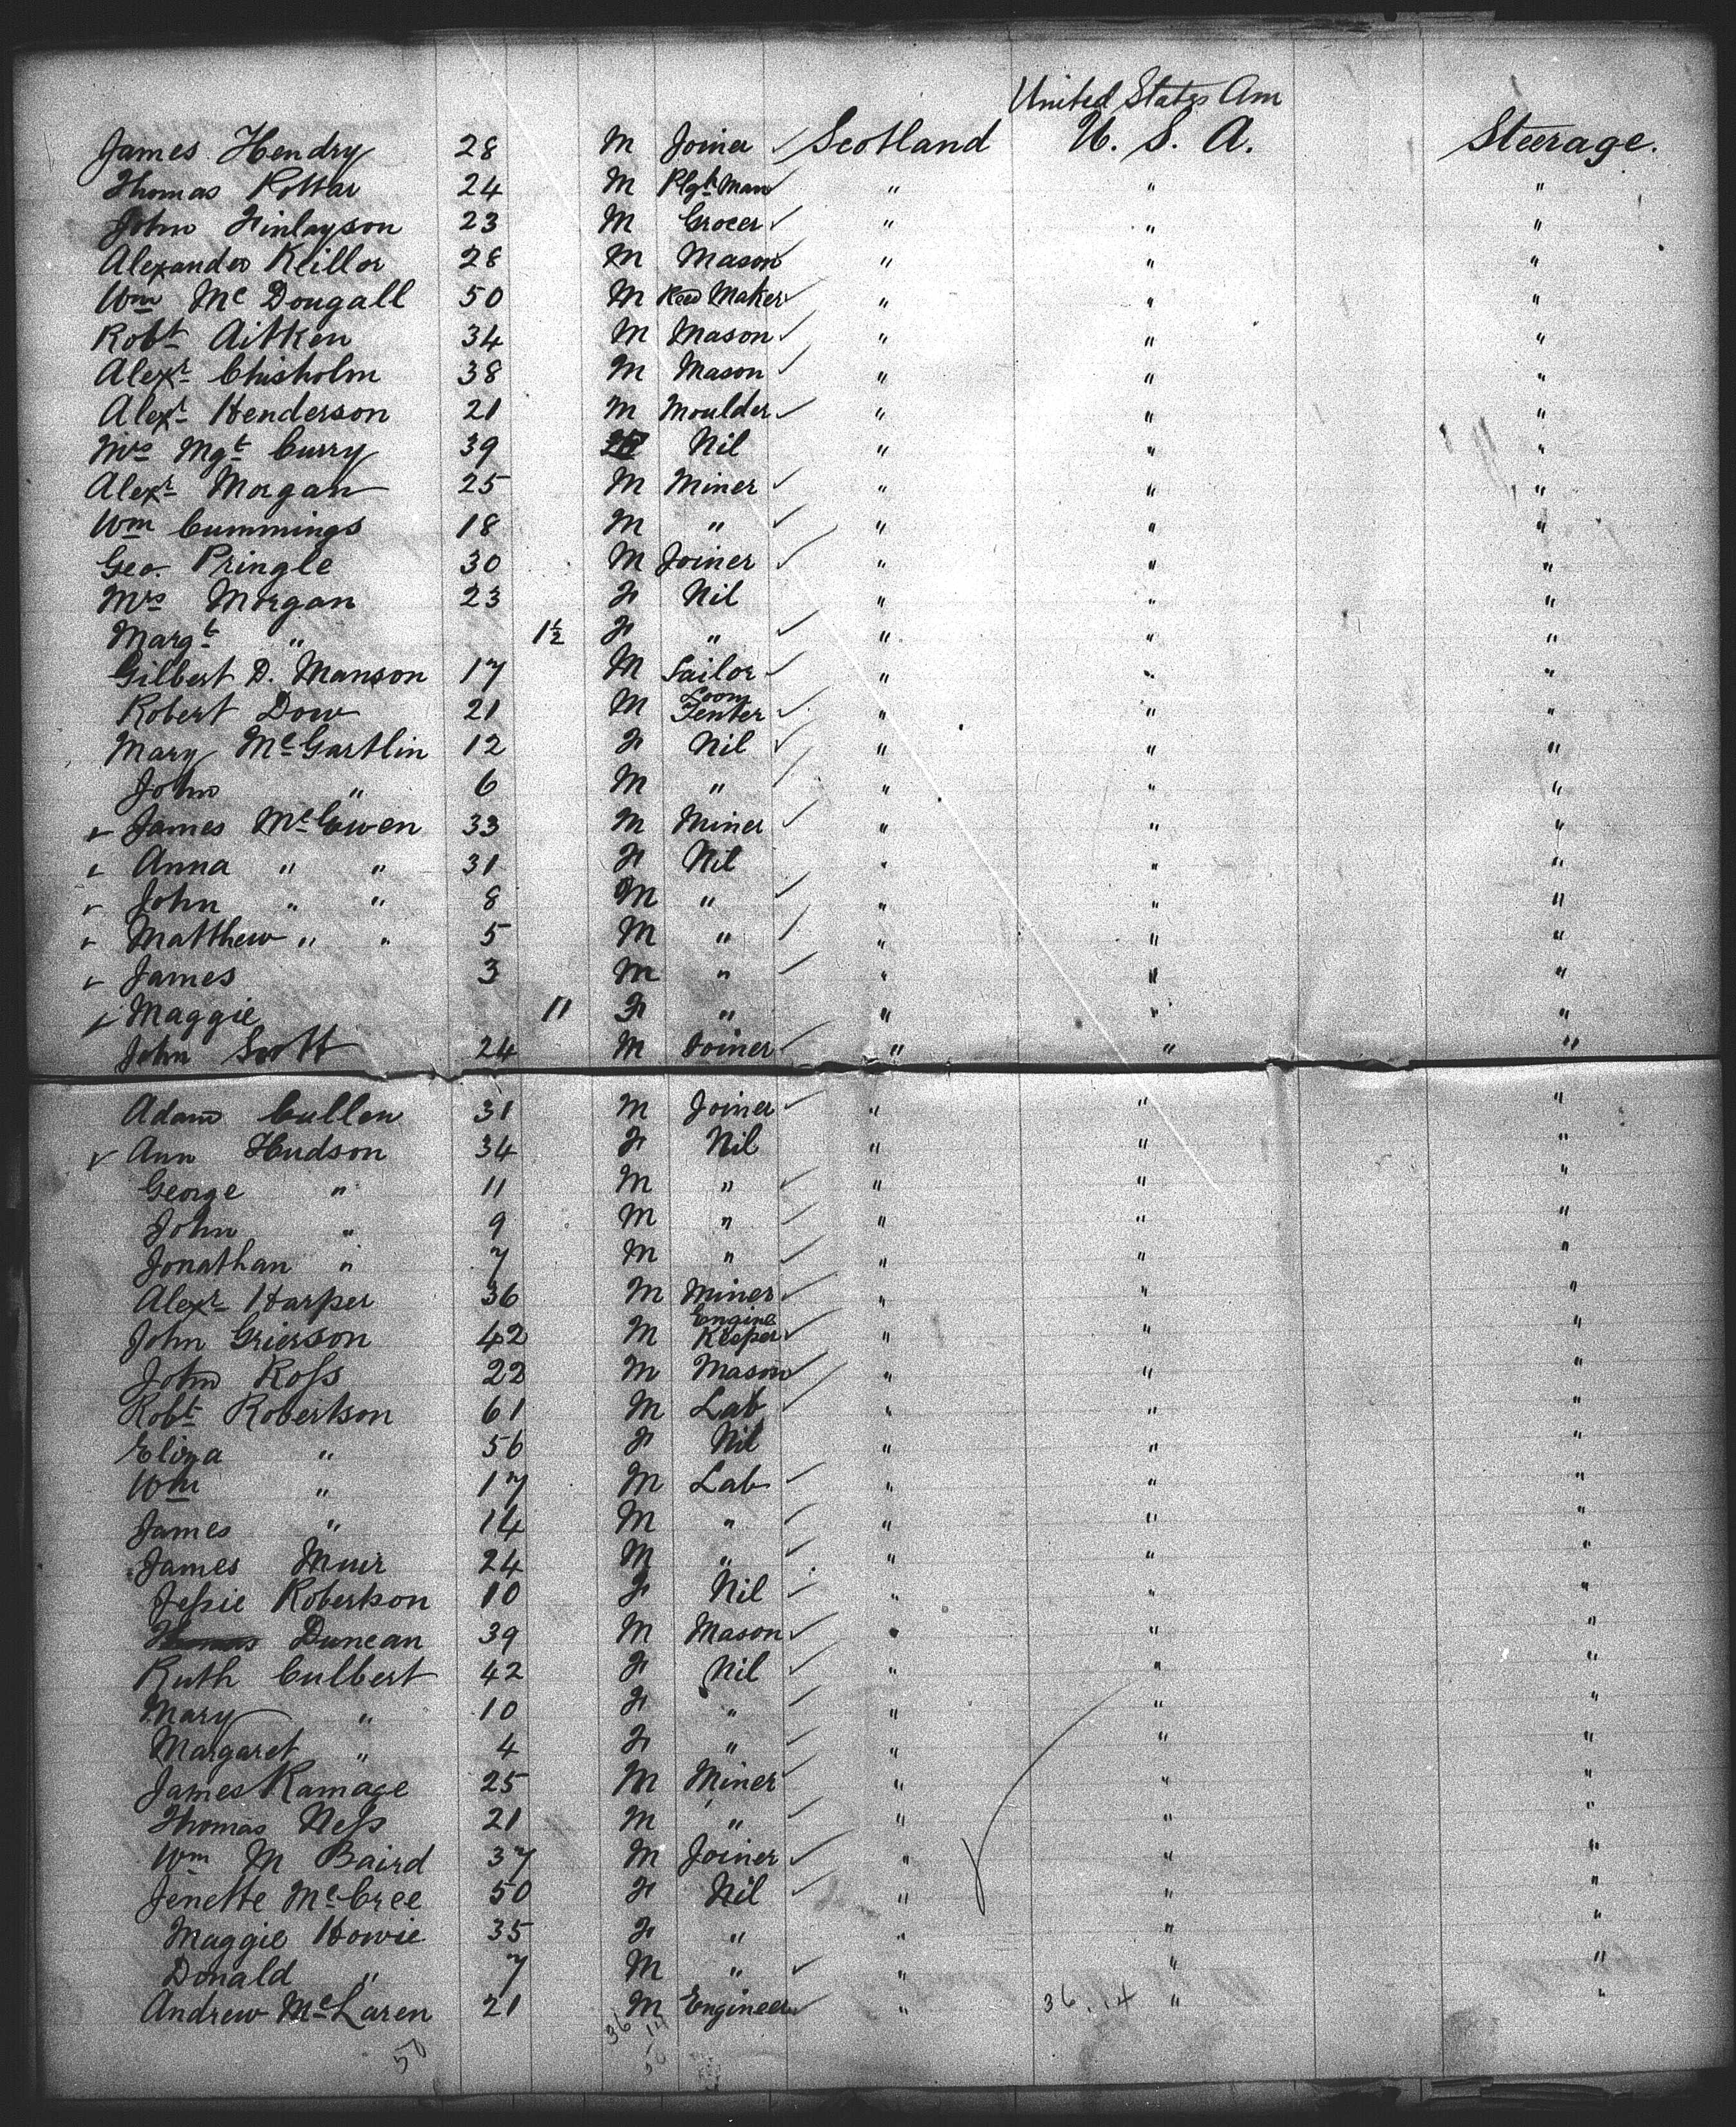 United States Am
James Hendry 28 M Joiner ✓ Scotland U. S. A. Steerage.
Thomas 24 M Plgh Man " " "
John Finlayson 23 M Grocer ✓ " " "
Alexander Keillor 28 M Mason " " "
Wm Mc Dougall 50 M Reed Maker ✓ " " "
Robt Aitken 34 M Mason ✓ " " "
Alexr Chisholm 38 M Mason ✓ " " "
Alexr Henderson 21 M Moulder ✓ " " "
Mrs Mgt Curry 39 Nil " " "
Alexr Morgan 25 M Miner ✓ " " "
Wm Cummings 18 M " ✓ " " "
Geo. Pringle 30 M Joiner ✓ " " "
Mrs Morgan 23 F Nil " " "
Margt " 1½ F " ✓ " " "
Gilbert D. Manson 17 M Sailor ✓ " " "
Robert Dow 21 M Loom Tenter ✓ " " "
Mary McGartlin 12 F Nil ✓ " " "
John " 6 M " ✓ " " "
✓ James McEwen 33 M Miner ✓ " " "
✓ Anna " " 31 F Nil " " "
✓ John " " 8 M " ✓ " " "
✓ Matthew " " 5 M " ✓ " " "
✓ James 3 M " ✓ " " "
✓ Maggie 11 F " " " "
John Scott 24 M Joiner ✓ " " "
Adam Cullen 31 M Joiner ✓ " " "
✓ Ann Hudson 34 F Nil " " "
George " 11 M " ✓ " " "
John " 9 M " ✓ " " "
Jonathan " 7 M " ✓ " " "
Alexr Harper 36 M Miner ✓ " " "
John Grierson 42 M Engine Keeper ✓ " " "
John Ross 22 M Mason ✓ " " "
Robt Robertson 61 M Lab ✓ " " "
Eliza " 56 F Nil " " "
Wm " 17 M Lab ✓ " " "
James " 14 M " ✓ " " "
James Muir 24 M " ✓ " " "
Jessie Robertson 10 F Nil ✓ " " "
Thomas Duncan 39 M Mason ✓ " " "
Ruth Culbert 42 F Nil ✓ " " "
Mary " 10 F " ✓ " " "
Margaret " 4 F " ✓ " " "
James Ramage 25 M Miner ✓ " " "
Thomas Ness 21 M " ✓ " " "
Wm M Baird 37 M Joiner ✓ " " "
Jenette McCree 50 F Nil ✓ " " "
Maggie Howie 35 F " " " "
Donald " 7 M " ✓ " " "
Andrew McLaren 21 M Engineer ✓ " 36.14 " "
50 36 14 50